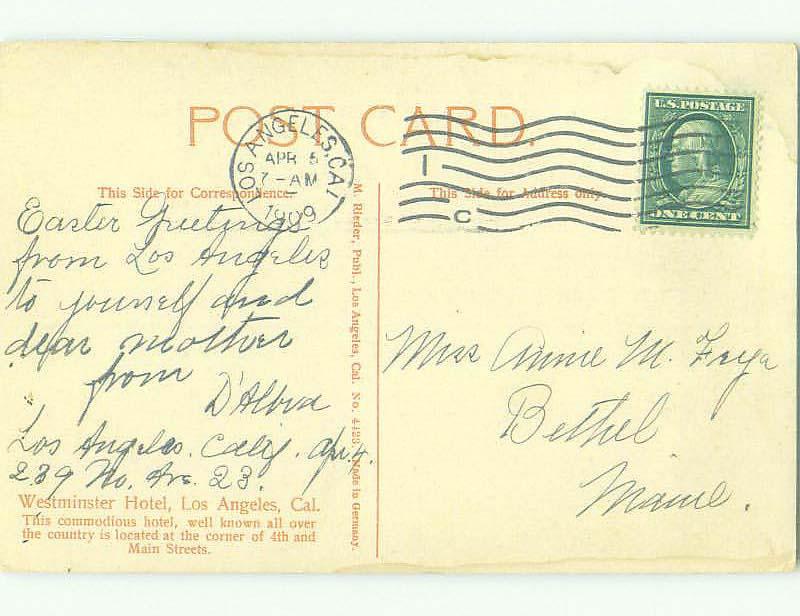 POST CARD.
LOS ANGELES, CAL
APR 5
7-AM
1909
1
C
U.S. POSTAGE
ONE CENT
This Side for Correspondence.
This Side for Address only
Easter Greetings
from Los Angeles
to yourself and
dear mother
from
Los Angeles. Calif. Apr. 4.
239 No. Ave. 23.
Westminster Hotel, Los Angeles, Cal.
This commodious hotel, well known all over
the country is located at the corner of 4th and
Main Streets.
M. Rieder, Publ., Los Angeles, Cal. No. 4423. Made in Germany.
Miss Annie M.
Bethel
Maine.